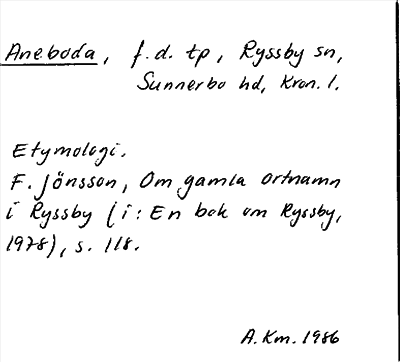 Aneboda, f.d. tp, Ryssby sn,
Sunnerbo hd, Kron. l.
Etymologi.
F. Jönsson, Om gamla ortnamn
i Ryssby (i: En bok om Ryssby,
1978), s. 118.
A. Km. 1986